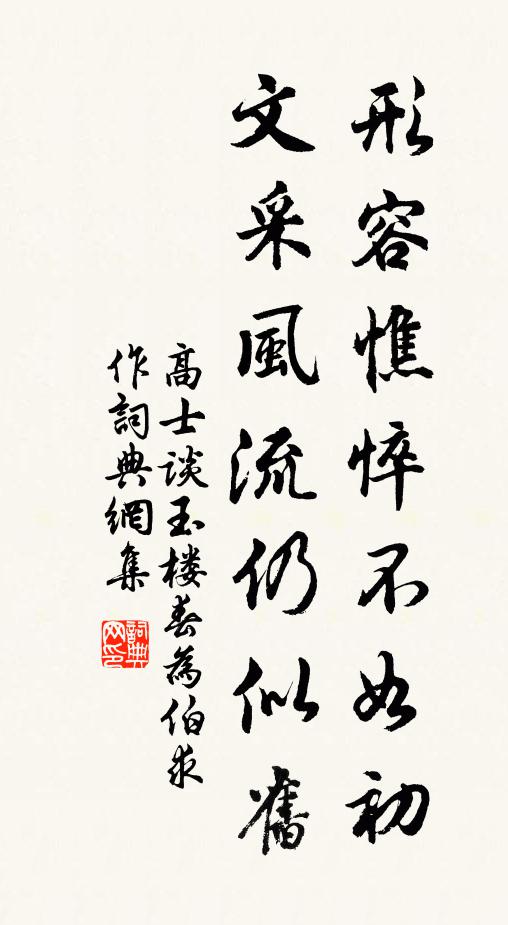 形容憔悴不如初
文采風流仍似舊
高士談玉楼春為伯求
作詞典網集
詞典
网印